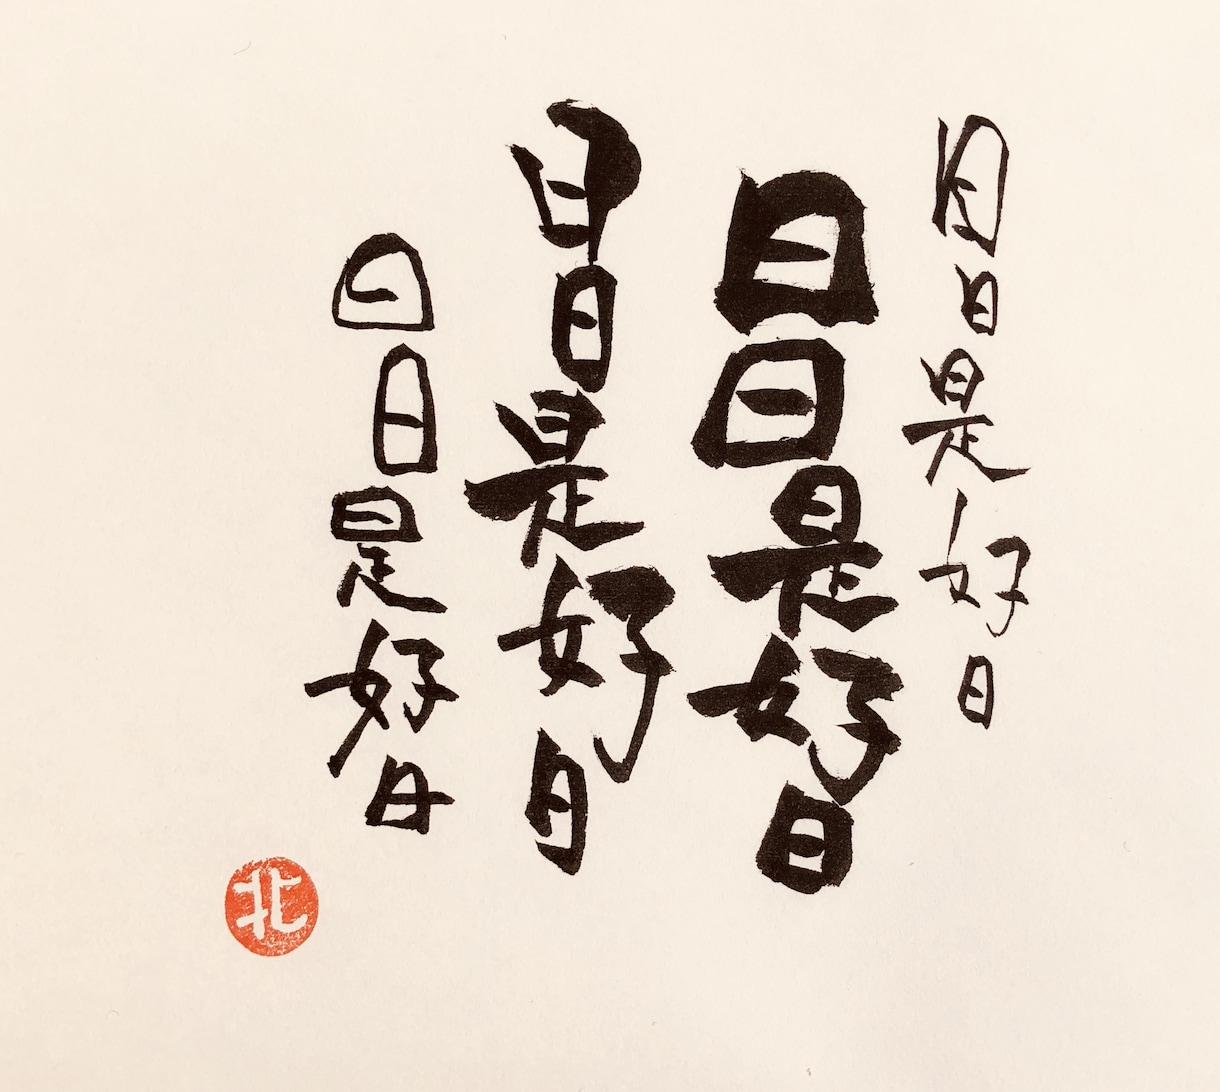 日日是好日
日日是好日
日日是好日
日日是好日
北